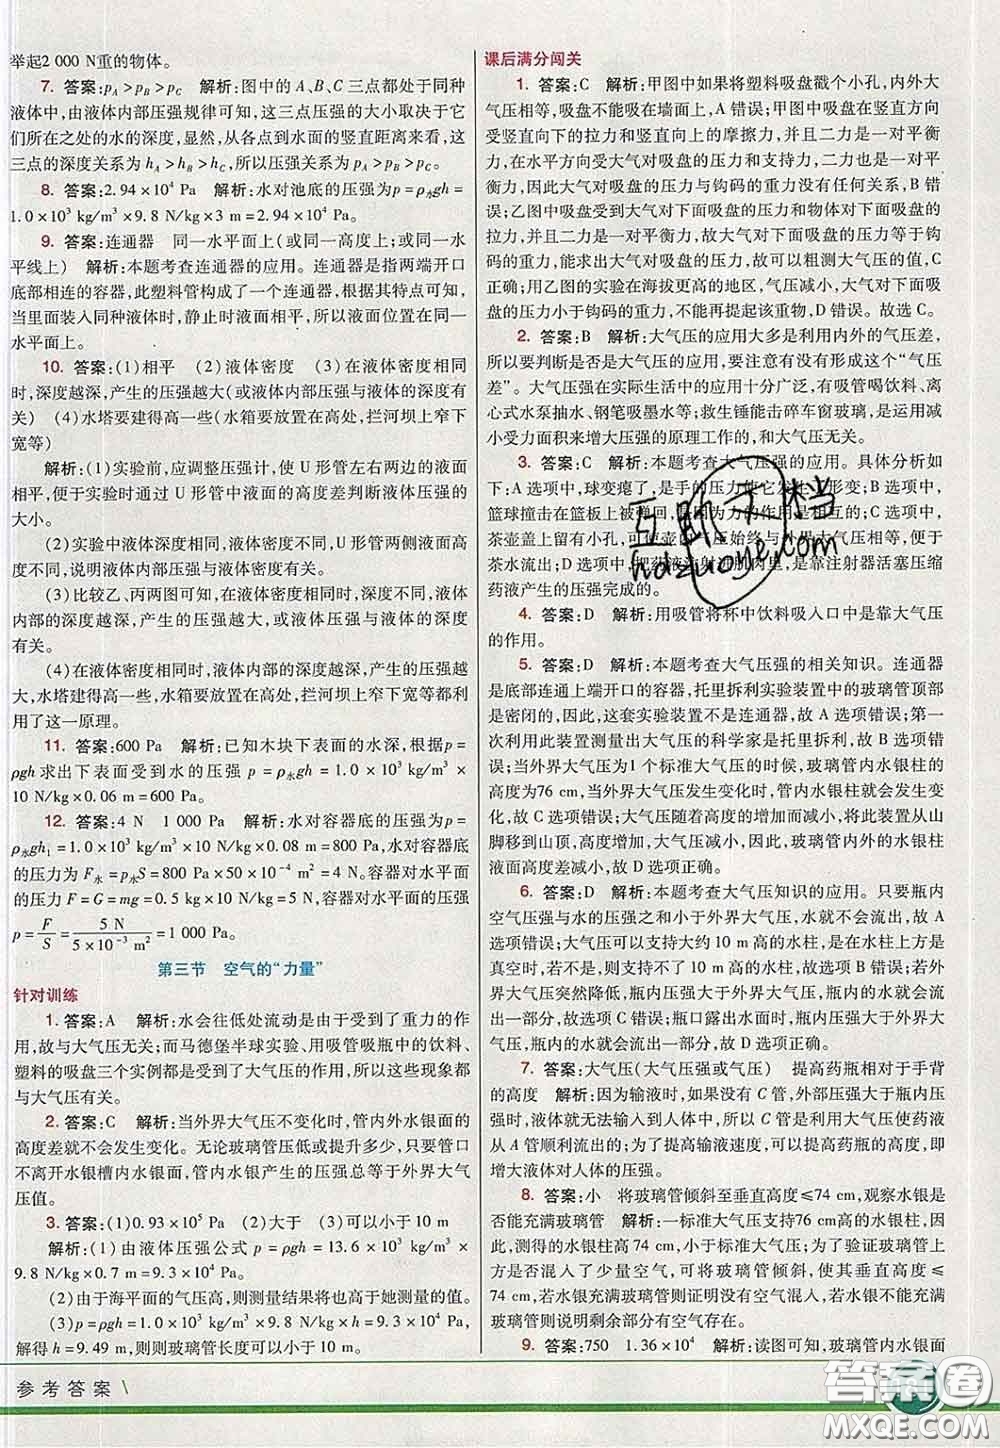 举起2 000 N重的物体。
7. 答案:pA>pB>pC 解析:图中的A、B、C三点都处于同种
液体中,由液体内部压强规律可知,这三点压强的大小取决于它
们所在之处的水的深度,显然,从各点到水面的竖直距离来看,这
三点的深度关系为hA>hB>hC,所以压强关系为pA>pB>pC。
8. 答案:2.94×10⁴ Pa 解析:水对池底的压强为p=ρ水gh=
1.0×10³ kg/m³×9.8 N/kg×3 m=2.94×10⁴ Pa。
9. 答案:连通器 同一水平面上(或同一高度上;或同一水
平线上) 解析:本题考查连通器的应用。连通器是指两端开口
底部相连的容器,此塑料管构成了一个连通器,根据其特点可知,
当里面装入同种液体时,静止时液面相平,所以液面位置在同一
水平面上。
10. 答案:(1)相平 (2)液体密度 (3)在液体密度相同
时,深度越深,产生的压强越大(或液体内部压强与液体的深度有
关) (4)水塔要建得高一些(水箱要放置在高处,拦河坝上窄下
宽等)
解析:(1)实验前,应调整压强计,使U形管左右两边的液面
相平,便于实验时通过U形管中液面的高度差判断液体压强的
大小。
(2)实验中液体深度相同,液体密度不同,U形管两侧液面高
度不同,说明液体内部压强与液体密度有关。
(3)比较乙、丙两图可知,在液体密度相同时,深度不同,液体
内部的深度越深,产生的压强越大,所以液体内部压强与深度
有关。
(4)在液体密度相同时,液体内部的深度越深,产生的压强越
大,水塔建得高一些,水箱要放置在高处,拦河坝上窄下宽等都利
用了这一原理。
11. 答案:600 Pa 解析:已知木块下表面的水深,根据p=
ρgh求出下表面受到水的压强p=ρ水gh=1.0×10³ kg/m³×
10 N/kg×0.06 m=600 Pa。
12. 答案:4 N 1 000 Pa 解析:水对容器底的压强为p=
ρ水gh₁=1.0×10³ kg/m³×10 N/kg×0.08 m=800 Pa,水对容器底
的压力为F水=p水S=800 Pa×50×10⁻⁴ m²=4 N。容器对水平面
的压力F=G=mg=0.5 kg×10 N/kg=5 N,容器对水平面的压强
p=F/S=5 N/(5×10⁻³ m²)=1 000 Pa。
第三节 空气的“力量”
针对训练
1. 答案:A 解析:水会往低处流动是由于受到了重力的作
用,故与大气压无关;而马德堡半球实验、用吸管吸瓶中的饮料、
塑料的吸盘三个实例都是受到了大气压的作用,所以这些现象都
与大气压有关。
2. 答案:C 解析:当外界大气压不变化时,管内外水银面的
高度差就不会发生变化。无论玻璃管压低或提升多少,只要管口
不离开水银槽内水银面,管内水银产生的压强总等于外界大气
压值。
3. 答案:(1)0.93×10⁵ Pa (2)大于 (3)可以小于10 m
解析:(1)由液体压强公式p=ρgh=13.6×10³ kg/m³×
9.8 N/kg×0.7 m=9.3×10⁴ Pa。
(2)由于海平面的气压高,则测量结果将也高于她测量的值。
(3)p=ρgh=1.0×10³ kg/m³×9.8 N/kg×h=9.3×10⁴ Pa,
解得h=9.49 m,则则玻璃管长度可以小于10 m。
课后满分闯关
1. 答案:C 解析:甲图中如果将塑料吸盘戳个小孔,内外大
气压相等,吸盘不能吸在墙面上,A错误;甲图中吸盘在竖直方向
受竖直向下的拉力和竖直向上的摩擦力,并且二力是一对平衡
力,在水平方向受大气对吸盘的压力和支持力,二力也是一对平
衡力,因此大气对吸盘的压力与钩码的重力没有任何关系,B错
误;乙图中吸盘受到大气对下面吸盘的压力和物体对下面吸盘的
拉力,并且二力是一对平衡力,故大气对下面吸盘的压力等于钩
码的重力,能求出大气对吸盘的压力,故可以粗测大气压的值,C
正确;用乙图的实验在海拔更高的地区,气压减小,大气对下面吸
盘的压力小于钩码的重力,不能再提起该重物,D错误。故选C。
2. 答案:B 解析:大气压的应用大多是利用内外的气压差,
所以要判断是否是大气压的应用,要注意有没有形成这个“气压
差”。大气压强在实际生活中的应用十分广泛,有吸管喝饮料、离
心式水泵抽水、钢笔吸墨水等;救生锤能击碎车窗玻璃,是运用减
小受力面积来增大压强的原理工作的,和大气压无关。
3. 答案:C 解析:本题考查大气压强的应用。具体分析如
下:A选项中,球变瘪了,是手的压力使它发生了形变;B选项中,
篮球撞击在篮板上被弹回,是因为力的作用是相互的;C选项中,
茶壶盖上留有小孔,可使壶内的气压始终与外界大气压平衡,便于
茶水流出;D选项中,把药液注射进肌肉里,是靠注射器活塞压缩
药液产生的压强完成的。
4. 答案:D 解析:用吸管将杯中饮料吸入口中是靠大气压
的作用。
5. 答案:D 解析:本题考查大气压强的相关知识。连通器
是底部连通上端开口的容器,托里拆利实验装置中的玻璃管顶部
是密闭的,因此,这套实验装置不是连通器,故A选项错误;第一
次利用此装置测量出大气压的科学家是托里拆利,故B选项错
误;当外界大气压为1个标准大气压的时候,玻璃管内水银柱的高
度为76 cm,当外界大气压发生变化时,管内水银柱也会发生变化,
故C选项错误;大气压随着高度的增加而减小,将此装置从山
脚移到山顶,高度增加,大气压减小,玻璃管内外的水银柱
液面高度差减小,故D选项正确。
6. 答案:D 解析:本题考查大气压知识的应用。只要瓶内
空气压强与水的压强之和小于外界大气压,水就不会流出,故A
选项错误;大气压可以支持大约10 m高的水柱,所以瓶内上方是
真空时,若水柱高度不超过10 m,水就不会流出,故B选项错误;大
气压突然降低,瓶内压强大于外界大气压,瓶内的水会流出来
一部分,故选项C错误;瓶口露出水面时,瓶内压强大于外界大气
压,水就会流出来一部分,故D选项正确。
7. 答案:大气压(大气压强或气压) 提高药瓶相对于手背
的高度 解析:因为输液时,如果没有C管,外部压强大于瓶内压
强,液体就无法输入到人体中,所以C管是利用大气压使药液
从A管顺利流出的;为了提高输液速度,可以提高药瓶的高度,即
增大液体对人体的压强。
8. 答案:小 将玻璃管倾斜至垂直高度≤74 cm,观察水银是
否能充满玻璃管 解析:一标准大气压可以支持76cm高的水银
柱,因此,测得的水银柱高74 cm,小于标准大气压;为了验证玻璃
管内是否混入了少量空气,可将玻璃管倾斜,使其垂直高度≤
74 cm,若水银能充满玻璃管则证明没有空气混入,若水银不能充
满则说明剩余部分有空气存在。
9. 答案:750 1.36×10⁴ 解析:读图可知,玻璃管内水银面
参考答案
答案圈
MXQE.COM